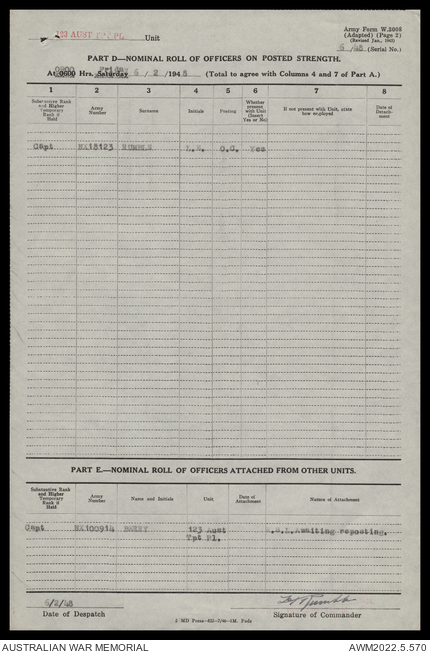 Army Form W.3008
(Adapted) (Page 2)
(Revised Jan., 1943)
123 AUST Unit
6/48 (Serial No.)
PART D—NOMINAL ROLL OF OFFICERS ON POSTED STRENGTH.
0900 Friday
At 0600 Hrs. Saturday 6 / 2 / 1948 (Total to agree with Columns 4 and 7 of Part A.)
1 2 3 4 5 6 7 8
Substantive Rank and Higher Temporary Rank if Held
Army Number
Surname
Initials
Posting
Whether present with Unit (Insert Yes or No)
If not present with Unit, state how employed
Date of Detachment
Capt NX18123 RUMBLE L.E. O.C. Yes
PART E.—NOMINAL ROLL OF OFFICERS ATTACHED FROM OTHER UNITS.
Substantive Rank and Higher Temporary Rank if Held
Army Number
Name and Initials
Unit
Date of Attachment
Nature of Attachment
Capt NX100914 123 Aust Awaiting reposting.
Tpt Pl.
6/2/48
Date of Despatch
Signature of Commander
AUSTRALIAN WAR MEMORIAL
AWM2022.5.570